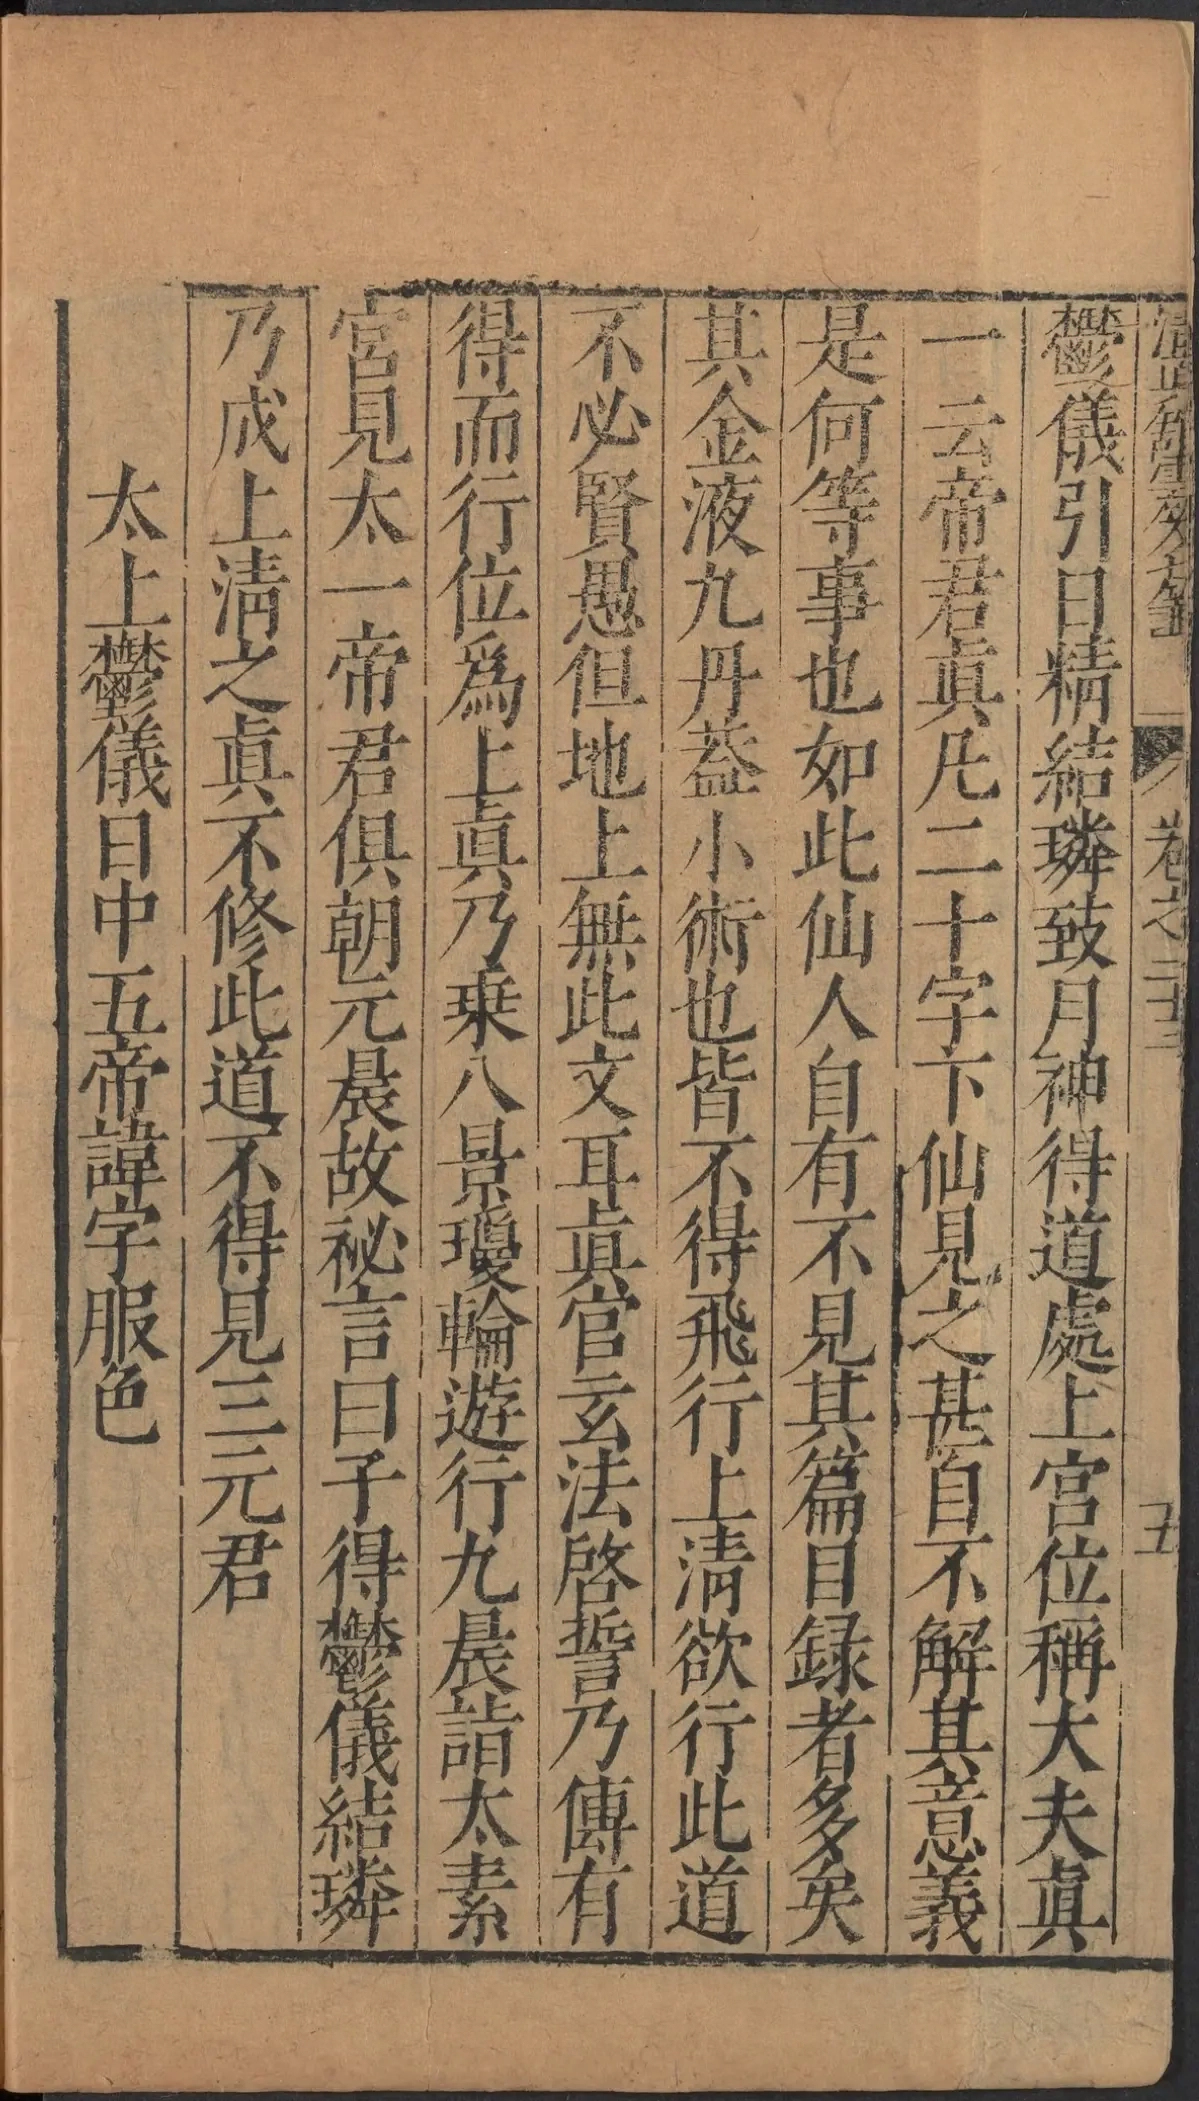 卷之二十三
五
鬱儀引日精結璘致月神得道處上宮位稱大夫眞
一云帝君眞凡二十字下仙見之甚自不解其意義
是何等事也如此仙人自有不見其篇目録者多矣
其金液九丹葢小術也皆不得飛行上淸欲行此道
不必賢愚但地上無此文耳眞官玄法啓誓乃傳有
得而行位爲上眞乃乗八景瓊輪遊行九晨詣太素
宮見太一帝君俱朝元晨故祕言曰子得鬱儀結璘
乃成上淸之眞不修此道不得見三元君
太上鬱儀日中五帝諱字服色